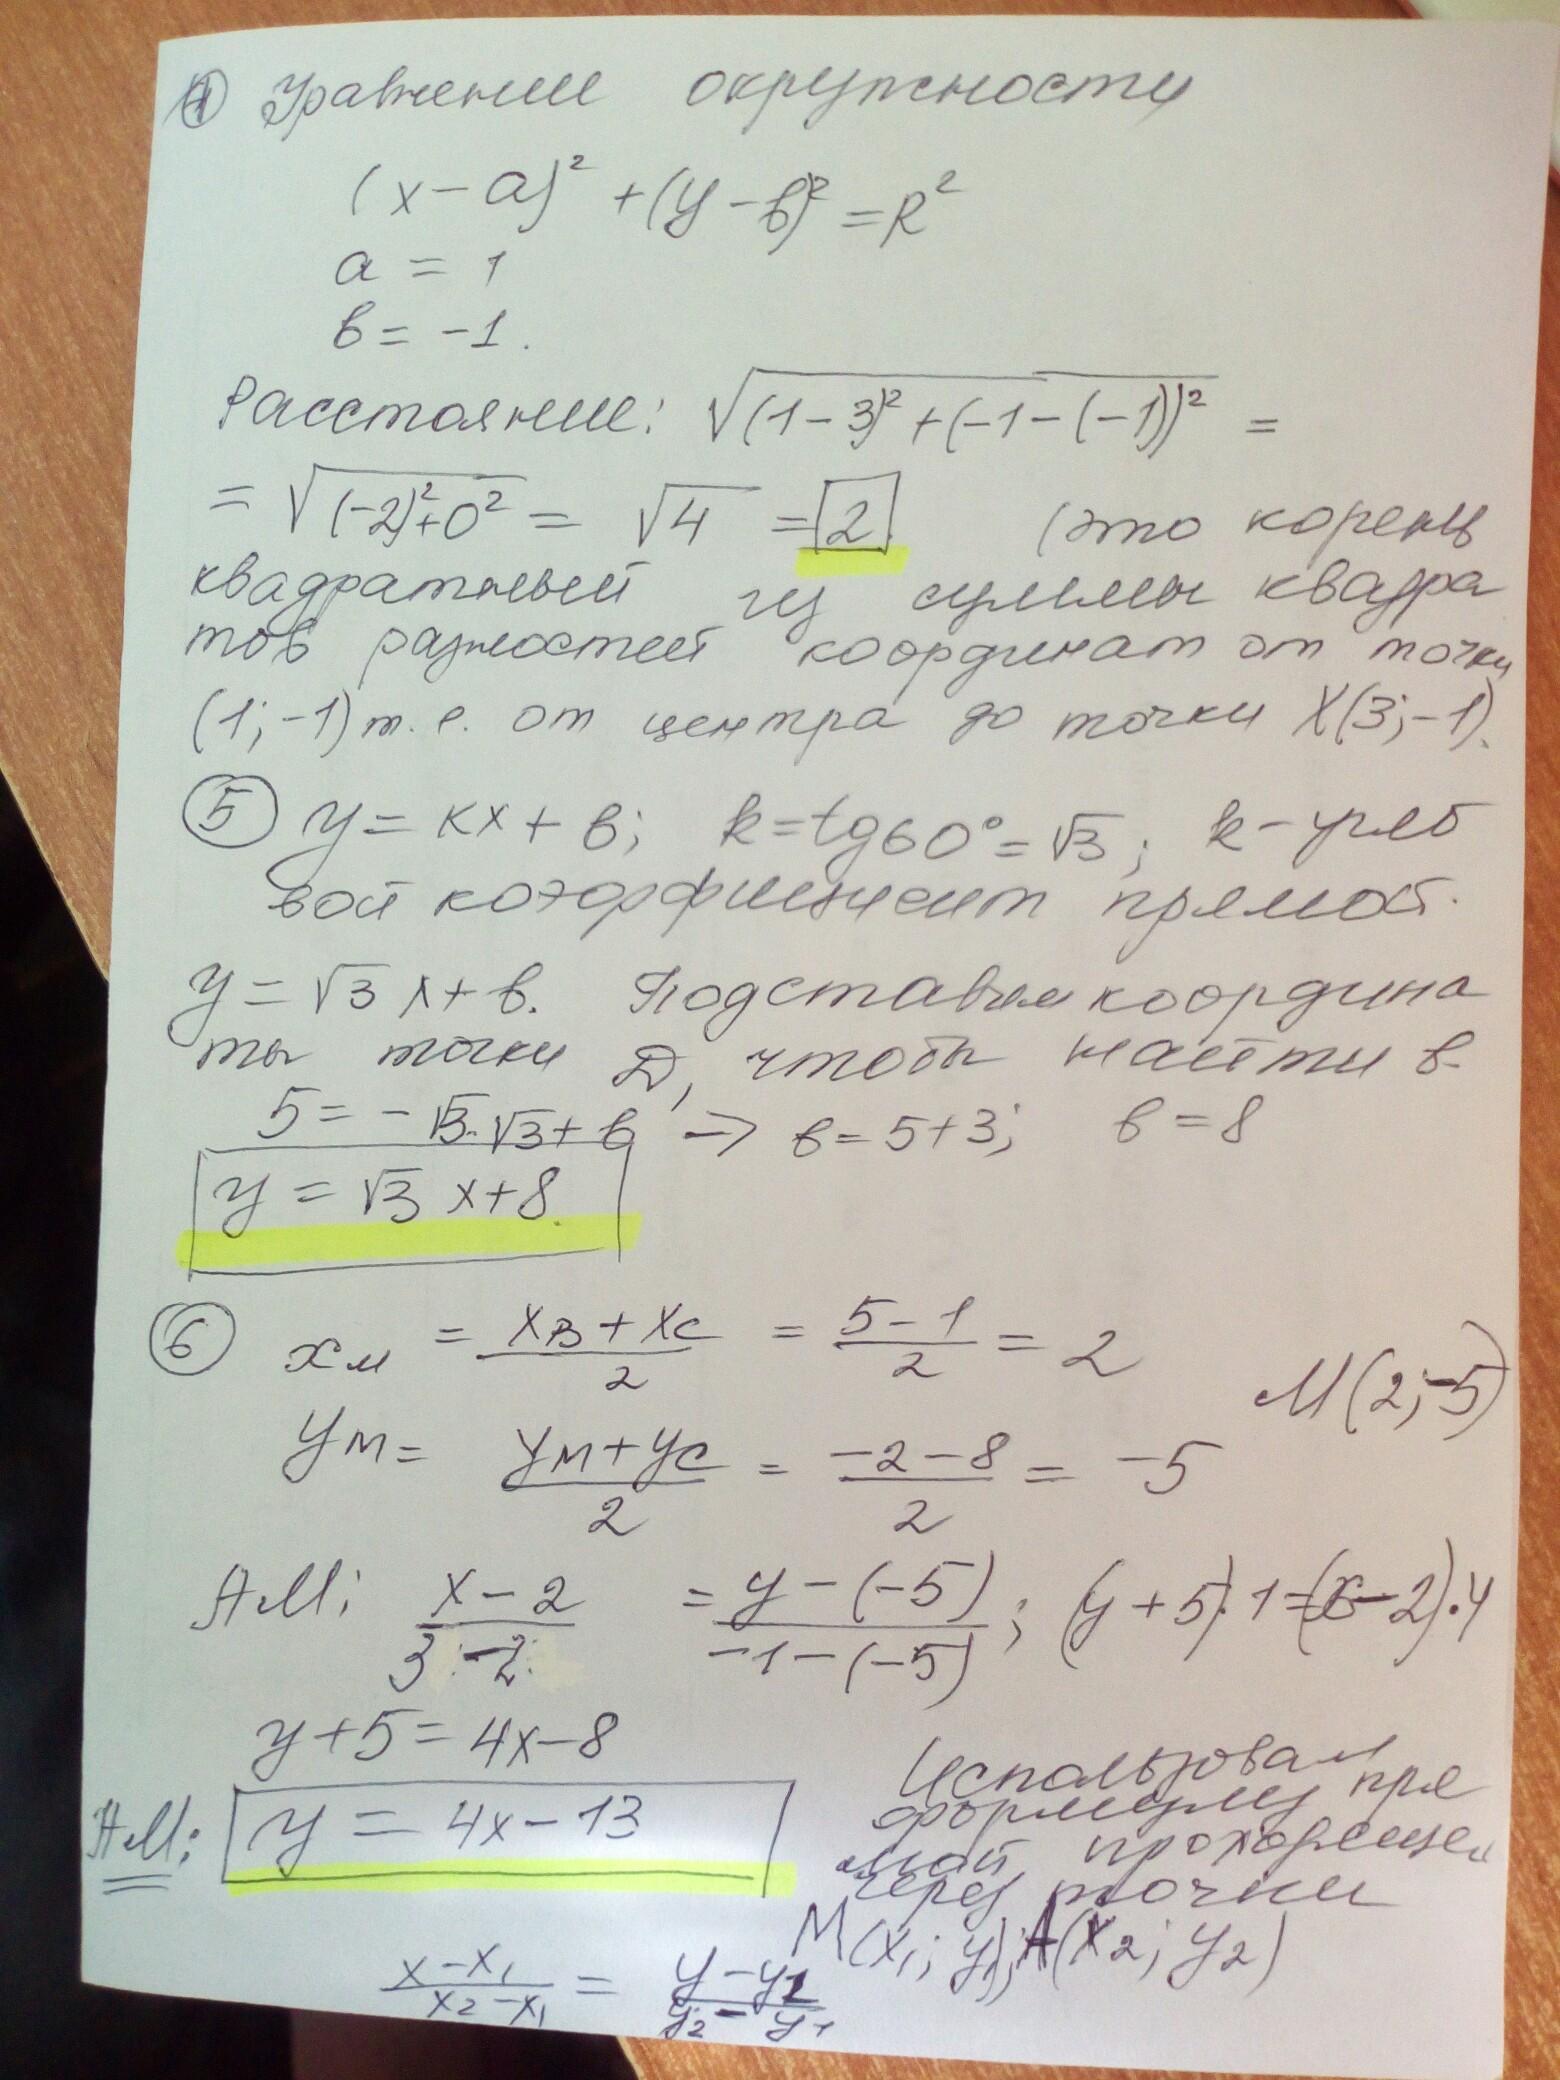 ④ Уравнение окружности
(x – a)² + (y – в)² = R²
a = 1
в = -1.
Расстояние: √((1 – 3)² + (-1 – (-1))²) =
= √((-2)² + 0²) = √4 = 2 (это корень
квадратный из суммы квадра
тов разностей координат от точки
(1; -1) т. е. от центра до точки X(3; -1).
⑤ y = kx + в; k = tg60° = √3; k – угло
вой коэффициент прямой.
y = √3 x + в. Подставим координа
ты точки D, чтобы найти в.
5 = -√3·√3 + в → в = 5 + 3; в = 8
y = √3 x + 8.
⑥ xм = (xB + xC)/2 = (5 – 1)/2 = 2
M(2; -5)
yм = (yм + yC)/2 = (-2 – 8)/2 = -5
AM: (x – 2)/(3 – 2) = (y – (-5))/(-1 – (-5)); (y + 5)·1 = (x – 2)·4
y + 5 = 4x – 8
AM: y = 4x – 13
Использовал
формулу пря
мой, проходящей
через точки
M(x₁; y₁); A(x₂; y₂)
(x – x₁)/(x₂ – x₁) = (y – y₁)/(y₂ – y₁)